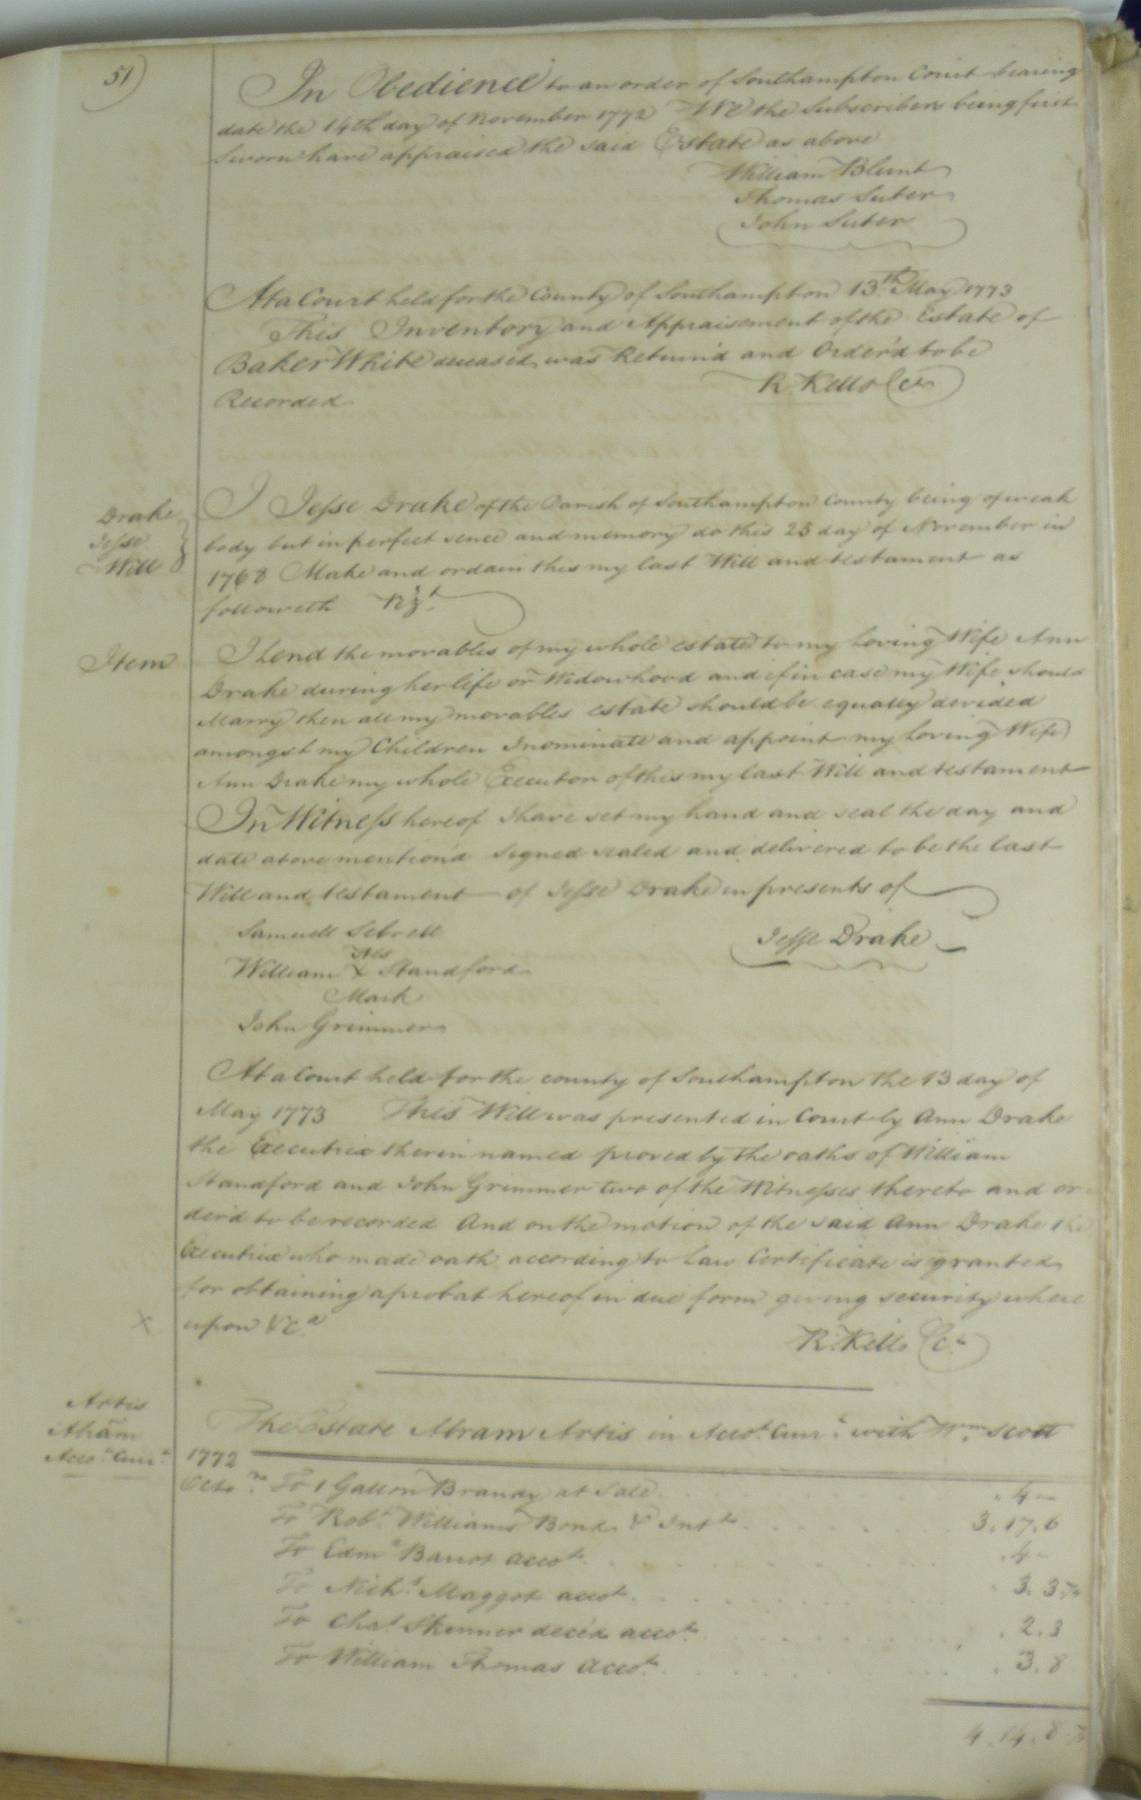 51)
In Obedience to an order of Southampton Court bearing
date the 14th day of November 1772 We the Subscribers being first
Sworn have appraised the said Estate as above
William Blunt
Thomas Suter
John Suter
At a Court held for the County of Southampton 13th May 1773
This Inventory and Appraisement of the Estate of
Baker White deceased was Return'd and Order'd to be
Recorded
R. Kello
Drake
Jesse
Will
I Jesse Drake of the Parish of Southampton County being of weak
body but in perfect sence and memory do this 25 day of November in
1768 Make and ordain this my last Will and testament as
followeth
Item
I Lend the movables of my whole estate to my Loving Wife Ann
Drake during her life or Widowhood and if in case my Wife should
Marry then all my movables estate should be equally devided
amongst my Children I nominate and appoint my Loving Wife
Ann Drake my whole Executor of this my last Will and testament
In Witness hereof I have set my hand and seal the day and
date above mention'd Signed sealed and delivered to be the last
Will and testament of Jesse Drake in presents of
Jesse Drake
Samuell Sebrell
his
William X Standford
Mark
John Grimmer
At a Court held for the county of Southampton the 13 day of
May 1773 This Will was presented in Court by Ann Drake
the Executrix therein named proved by the oaths of William
Standford and John Grimmer two of the Witnesses thereto and or
der'd to be recorded And on the motion of the said Ann Drake the
Executrix who made oath according to Law Certificate is granted
for obtaining a probat hereof in due form giving security where
upon &c.a
R. Kello
X
Artis
Abram
Acco.t Curr.t
The Estate Abram Artis in Acco.t Curr.t with W.m Scott
1772
Octo. To 1 Gallon Brandy at Sale . 4 -
To Rob.t Williams Bond & Int.t 3.17.6
To Edm.d Barrot acco.t . 4 -
To Nich.s Maggot acco.t . 3. 3
To Cha.s Skinner dece'd acco.t . 2. 3
To William Thomas acco.t . 3. 8
4.14.8